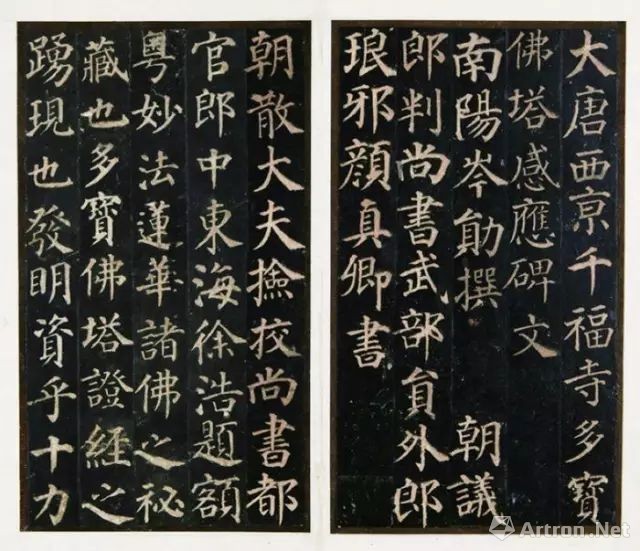 大唐西京千福寺多寶
佛塔感應碑文
南陽岑勛撰 朝議
郎判尚書武部員外郎
琅邪顏真卿書
朝散大夫撿挍尚書都
官郎中東海徐浩題額
粵妙法蓮華諸佛之秘
藏也多寶佛塔證經之
踴現也發明資乎十力
Artron.Net